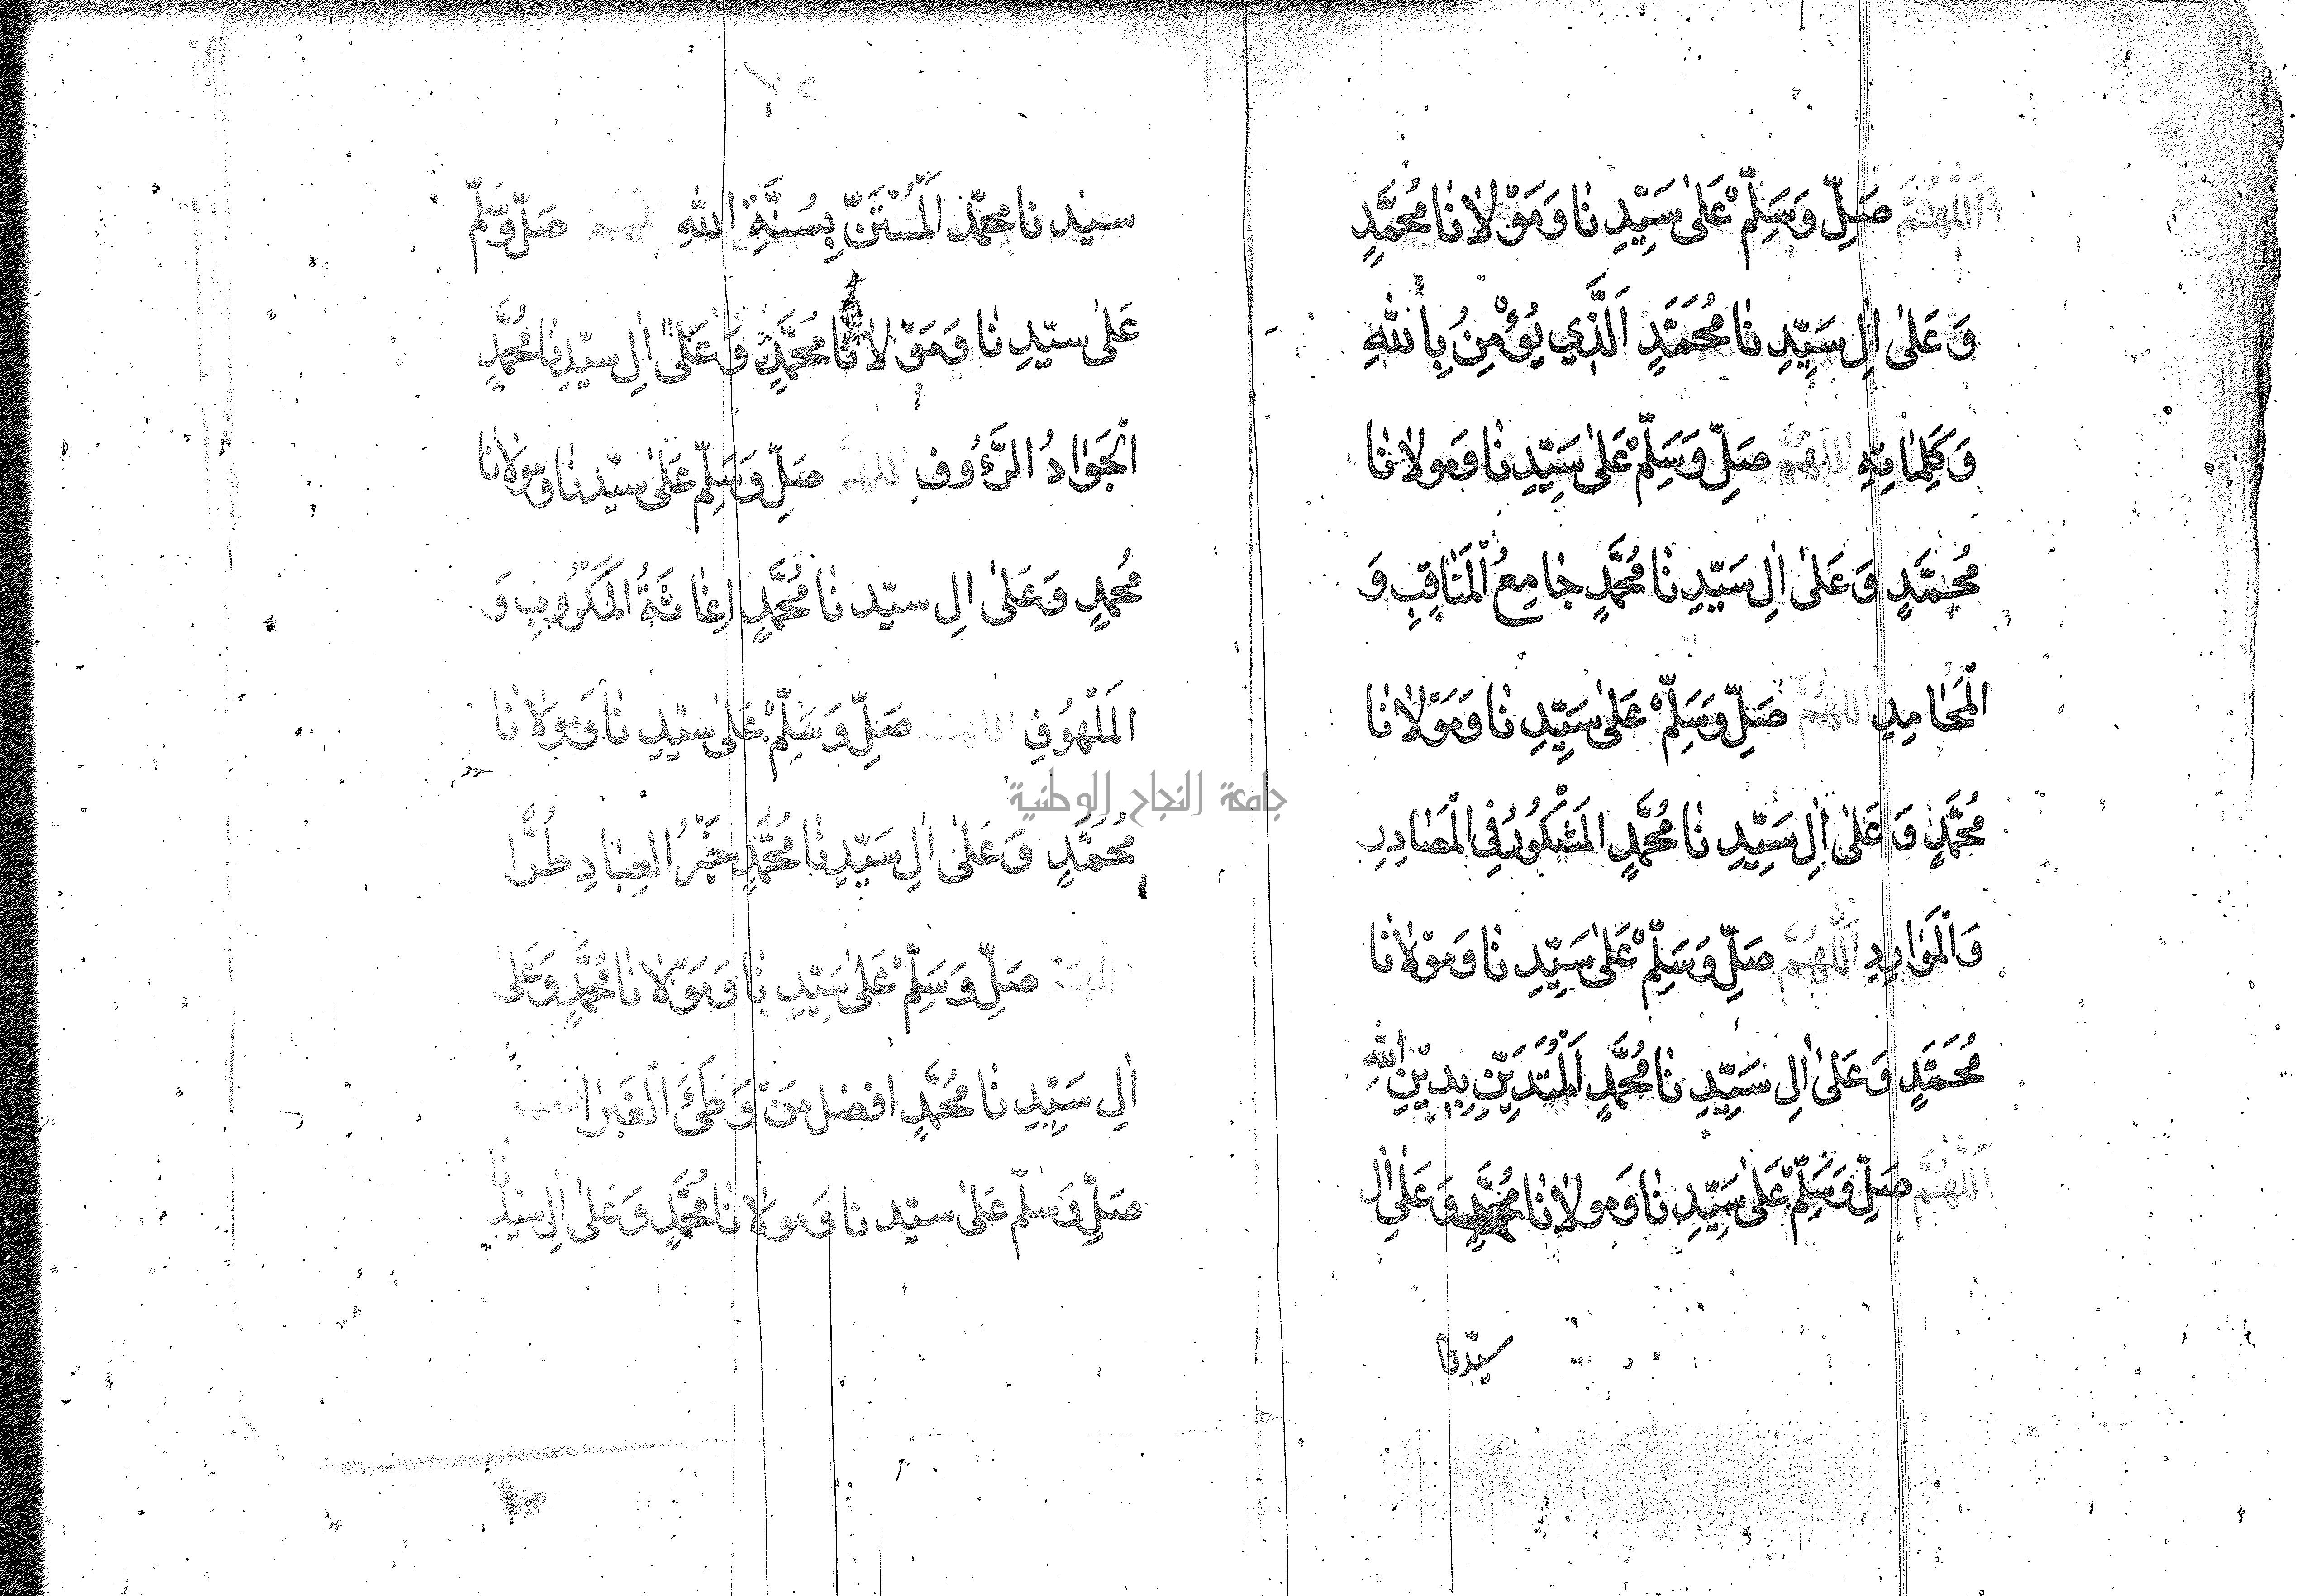 اَللّٰهُمَّ صَلِّ وَسَلِّمْ عَلٰى سَيِّدِنَا وَمَوْلَانَا مُحَمَّدٍ
وَعَلٰى اٰلِ سَيِّدِنَا مُحَمَّدٍ اَلَّذِي يُؤْمِنُ بِاللهِ
وَكَلِمَاتِهِ اَللّٰهُمَّ صَلِّ وَسَلِّمْ عَلٰى سَيِّدِنَا وَمَولَانَا
مُحَمَّدٍ وَعَلٰى اٰلِ سَيِّدِنَا مُحَمَّدٍ جَامِعُ الْمَنَاقِبِ وَ
الْمَحَامِدِ اَللّٰهُمَّ صَلِّ وَسَلِّمْ عَلٰى سَيِّدِنَا وَمَوْلَانَا
مُحَمَّدٍ وَعَلٰى اٰلِ سَيِّدِنَا مُحَمَّدٍ الْمَشْكُورُ فِي الْمَصَادِرِ
وَالْمَوَارِدِ اَللّٰهُمَّ صَلِّ وَسَلِّمْ عَلٰى سَيِّدِنَا وَمَوْلَانَا
مُحَمَّدٍ وَعَلٰى اٰلِ سَيِّدِنَا مُحَمَّدٍ اَلْمُتَدَيِّنِ بِدِيْنِ اللهِ
اَللّٰهُمَّ صَلِّ وَسَلِّمْ عَلٰى سَيِّدِنَا وَمَولَانَا مُحَمَّدٍ وَعَلٰى اٰلِ
سيّدنا
سيدنا محمّد اَلْمُسْتَنِّ بِسُنَّةِ اللهِ اللهم صَلِّ وَسَلِّم
عَلٰى سيّدِنَا وَمَوْلَانَا مُحَمَّدٍ وَعَلٰى اٰلِ سيّدِنَا مُحَمَّدٍ
الْجَوَادُ الرَّؤُوف اللهم صَلِّ وَسَلِّمْ عَلٰى سيّدنَا وَمَولَانَا
مُحَمدٍ وَعَلٰى اٰلِ سيّدنَا مُحَمَّدٍ اِغَاثَةُ الْمَكْرُوبِ وَ
الْمَلْهُوفِ اللهم صَلِّ وَسَلِّمْ عَلٰى سيّدِنَا وَمَولَانَا
مُحَمَّدٍ وَعَلٰى اٰلِ سَيّدِنَا مُحَمَّدٍ خَيْرُ العِبَادِ طُرًّا
اللهم صَلِّ وَسَلِّمْ عَلٰى سَيِّدِنَا وَمَوْلَانَا مُحَمَّدٍ وَعَلٰى
اٰلِ سَيِّدِنَا مُحَمَّدٍ افضل مَنْ وَطَئَ الْغَبْرَا
صَلِّ وَسَلّم عَلٰى سيّدنا وَمولَانَا مُحَمَّدٍ وَعَلٰى اٰلِ سيّدنَا
جامعة النجاح الوطنية